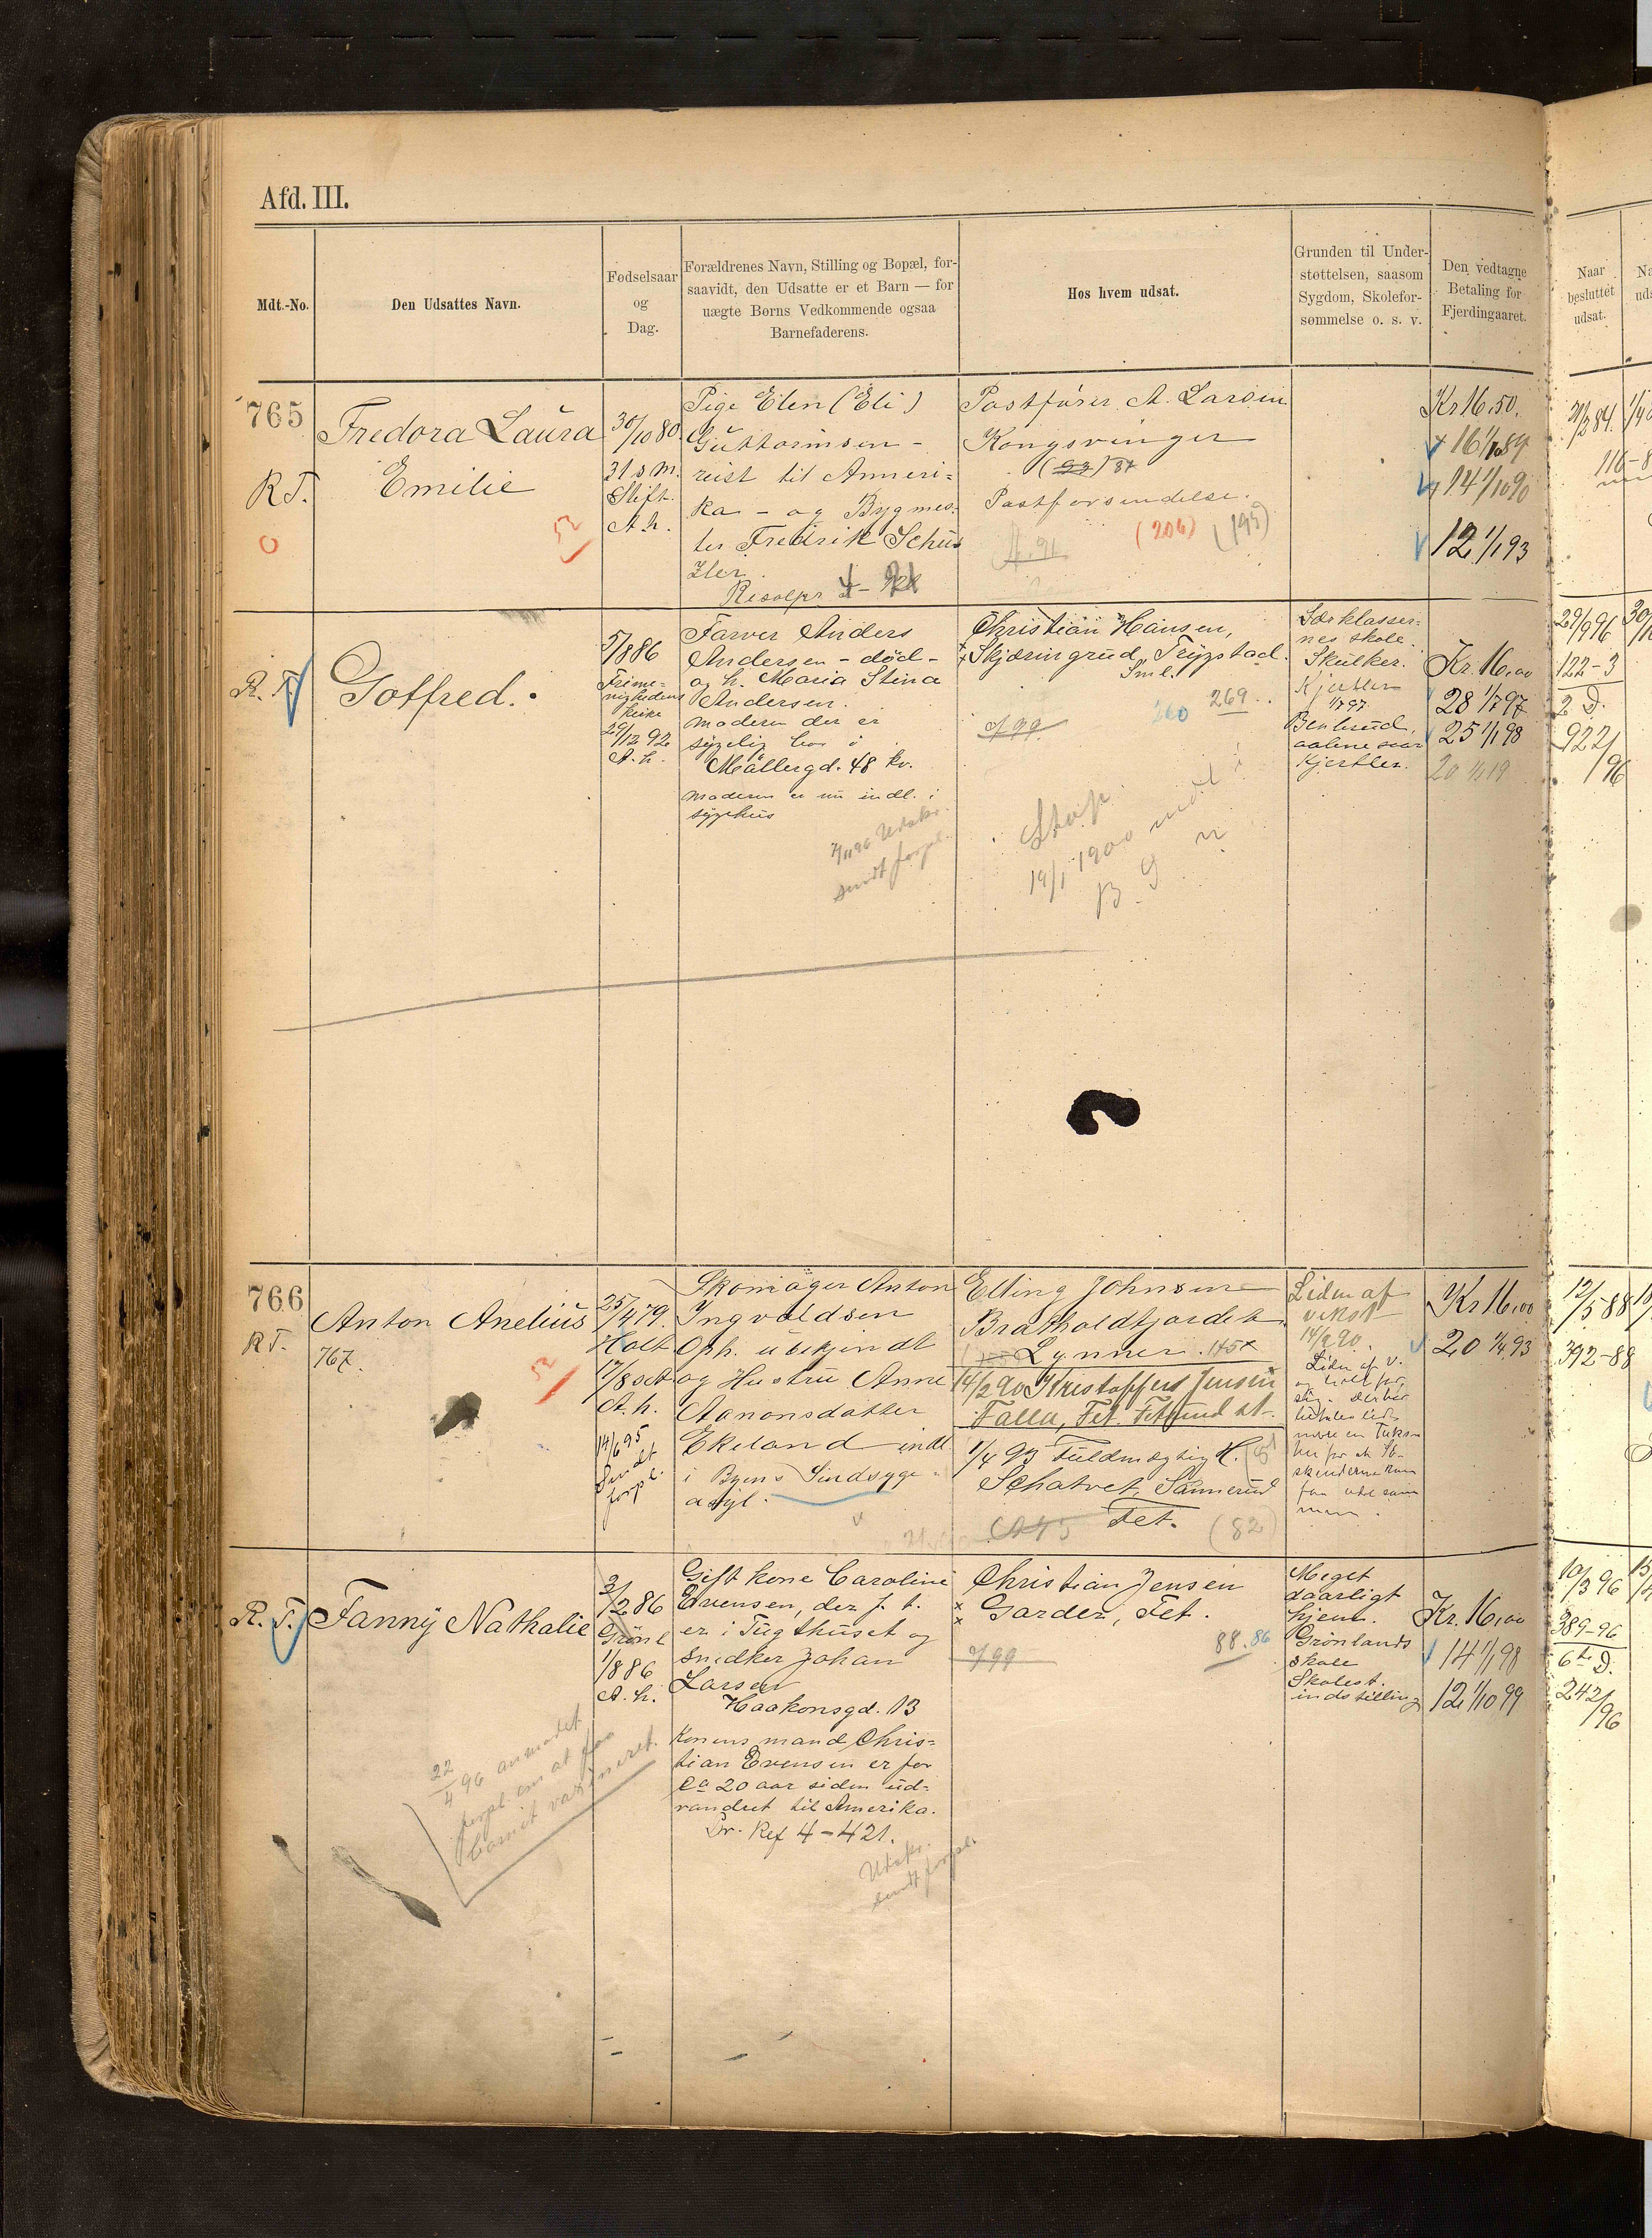 Afd. III.
Mdt.-No.
Den Udsattes Navn.
Fødselsaar
og
Dag.
Forældrenes Navn, Stilling og Bopæl, for-
saavidt, den Udsatte er et Barn — for
uægte Børns Vedkommende ogsaa
Barnefaderens.
Hos hvem udsat.
Grunden til Under-
støttelsen, saasom
Sygdom, Skolefor-
sømmelse o. s. v.
Den vedtagne
Betaling for
Fjerdingaaret.
Naar
besluttet
udsat.
765
R T.
Fredora Laura
Emilie
30/10 80
Stift.
A. h.
Pige Elen (Eli)
Guttormsen -
reist til Ammeri=
ka - og Bygmes=
ter Fredrik Schus
zler.
Postfører A. Larsen
Kongsvinger
Postforsendelse.
(206) (195)
Kr 16.50.
16 1/10 89
14 1/10 90
12 1/1 93
21/2 84.
R. T.
Gotfred.
5/8 86
Frime=
nighedens
Kirke
A. h.
Farver Anders
Andersen - død -
og h. Maria Stina
Andersen.
moderen der er
sygelig bor i
Møllergd. 48 kv.
moderen er nu indl. i
sygehus
Udskr.
sendt forpl.
Christian Hansen,
Skjæringrud, Trygstad.
Sml.
260 269
Stop.
19/1 1900
Særklasser=
nes skole
Skulker.
Kjertler
1/7 97
Kjertler.
Kr. 16,00
28 1/7 97
25 1/1 98
29/9 96
122-3
2 D.
922/96
766
R T.
Anton Anelius
767.
25/4 79.
Holt
17/8 s.A.
A. h.
14/6 95
Sendt
forpl.
Skomager Anton
Ingvaldsen
Oph. ubekjendt
og Hustru Anne
Aanonsdatter
Ekeland indl.
i Byens Sindsyge=
asyl.
Elling Johnsen
Bratholdtjordet
Lynner
14/2 90 Kristoffer Jensen
Falla, Fet. Fetsund st.
1/4 93 Fuldmægtig H.
Schatvet, Sannerud
Fet. (82)
Liden af
vekst
14/2 90.
Liden af V.
Kr 16,00
20 1/4 93
12/5 88
392-88
R. T.
Fanny Nathalie
3/2 86
Grønl
1/8 86
A. h.
22/4 96 anmodet
forpl. om at faa
barnit vaxineret.
Gift kone Caroline
Evensen, der f. t.
er i Tugthuset og
snedker Johan
Larsen
Haakonsgd. 13
Konens mand Chris=
tian Evensen er for
ca 20 aar siden ud=
vandret til Amerika.
Dr. Ref 4-421.
Udskr.
sendt forpl.
Christian Jensen
Garder, Fet.
88. 86
Meget
daarligt
hjem.
Grønlands
skole
Skolest.
indstilling
Kr. 16,00
14 1/1 98
12 1/10 99
10/3 96
389-96
6te D.
242/96